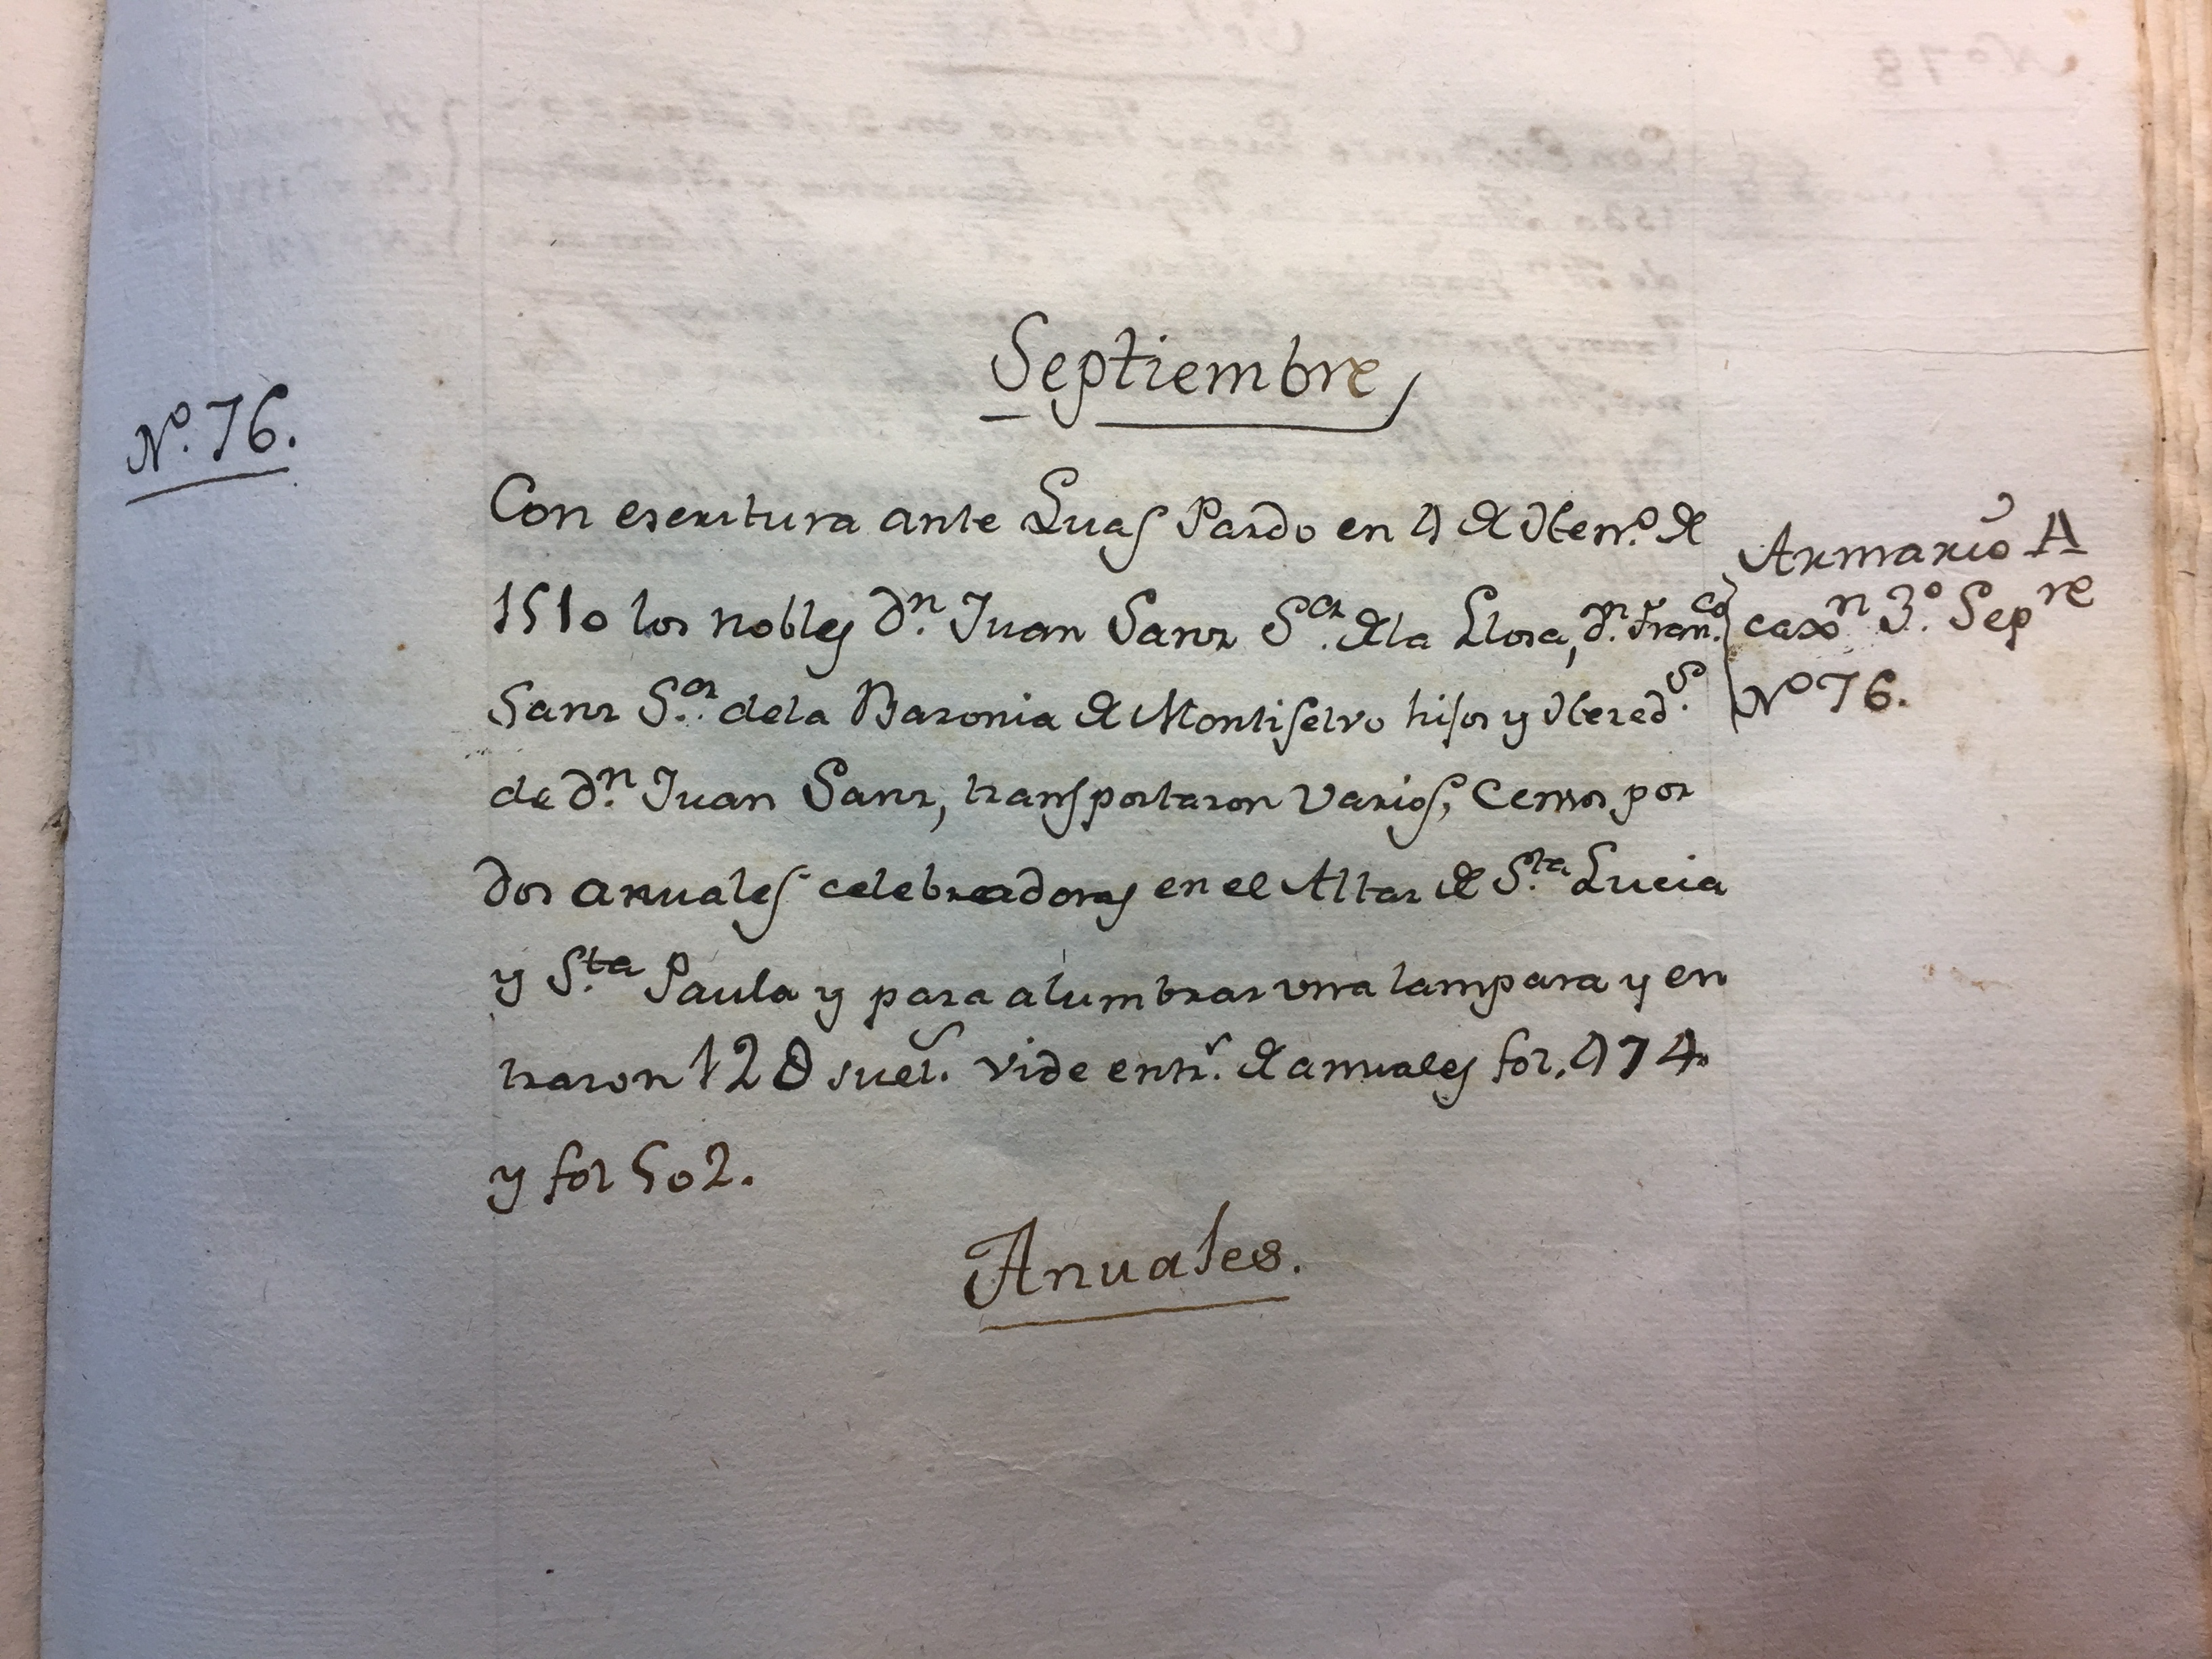 Septiembre
Nº. 76.
Con escritura ante Luas Pardo en 4 de Hen.º de
1510 los nobles Dn. Juan Sanz Sor. de la Llosa, Dn. Fran.co
Sanz Sor. dela Baronia de Montiselvo hijos y Hered.s
de Dn. Juan Sanz, transportaron varios, Censos por
dos anuales celebradoras en el Altar de S.ta Lucia
y S.ta Paula y para alumbrar una lampara y en
traron 128 suel. vide entr. de anuales fol. 474
y fol 502.
Armario A
caxon 3º. Sepre
Nº 76.
Anuales.